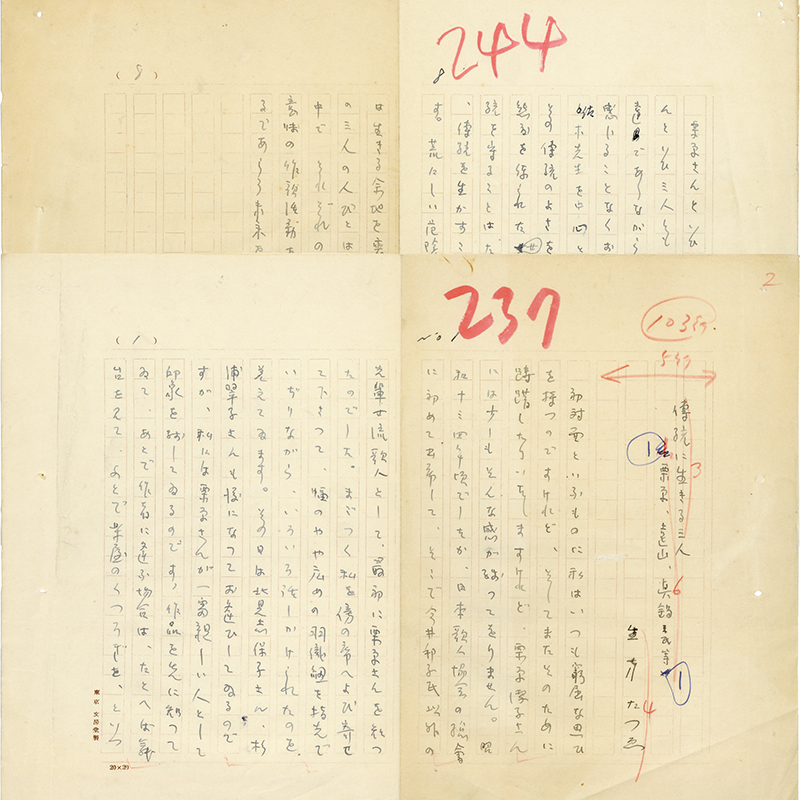 244
8
栗原さんといひ
んといひ三人とも
遠目でありながら
感じることなくお
佐々木先生を中心と
その傳統のよさを
統を守ることはた
、傳統を生かすこ
す。荒にしい危険
(8)
は生きる余地を奪
の三人の人びとは
中で それぞれの
意味の作歌活動を
るであらう未来を
237
No 1
2
103行.
5行
傳統に生きる三人
3
1
栗原、遠山、眞鍋氏等
6
1
生方たつゑ
4
初対面といふものに私はいつも窮屈な思ひ
を持つのですけれど、そしてまたそのために
躊躇したりいたしますけれど、栗原潔子さん
には少しもそんな感が残つてをりません。昭
和十三四年頃でしたか、日本歌人協会の総会
に初めて出席して、そこで今井邦子氏以外の
(1)
先輩女流歌人として、最初に栗原さんを知つ
たのでした。まごつく私を傍の席へよび寄せ
て下さつて、幅のやや広めの羽織紐を指先で
いぢりながら、いろいろ話しかけられたのを
覚えてゐます。その日は北見志保子さん、杉
浦翠子さんも後になつてお逢ひしてゐるので
すが、私には栗原さんが一番親しい人として
印象を残してゐるのです。作品を先に知つて
ゐて、あとで作者に逢ふ場合は、たとへば議
台をへて、あとで茶屋のくつろぎを、とりつ
東京 文房堂製
20×20